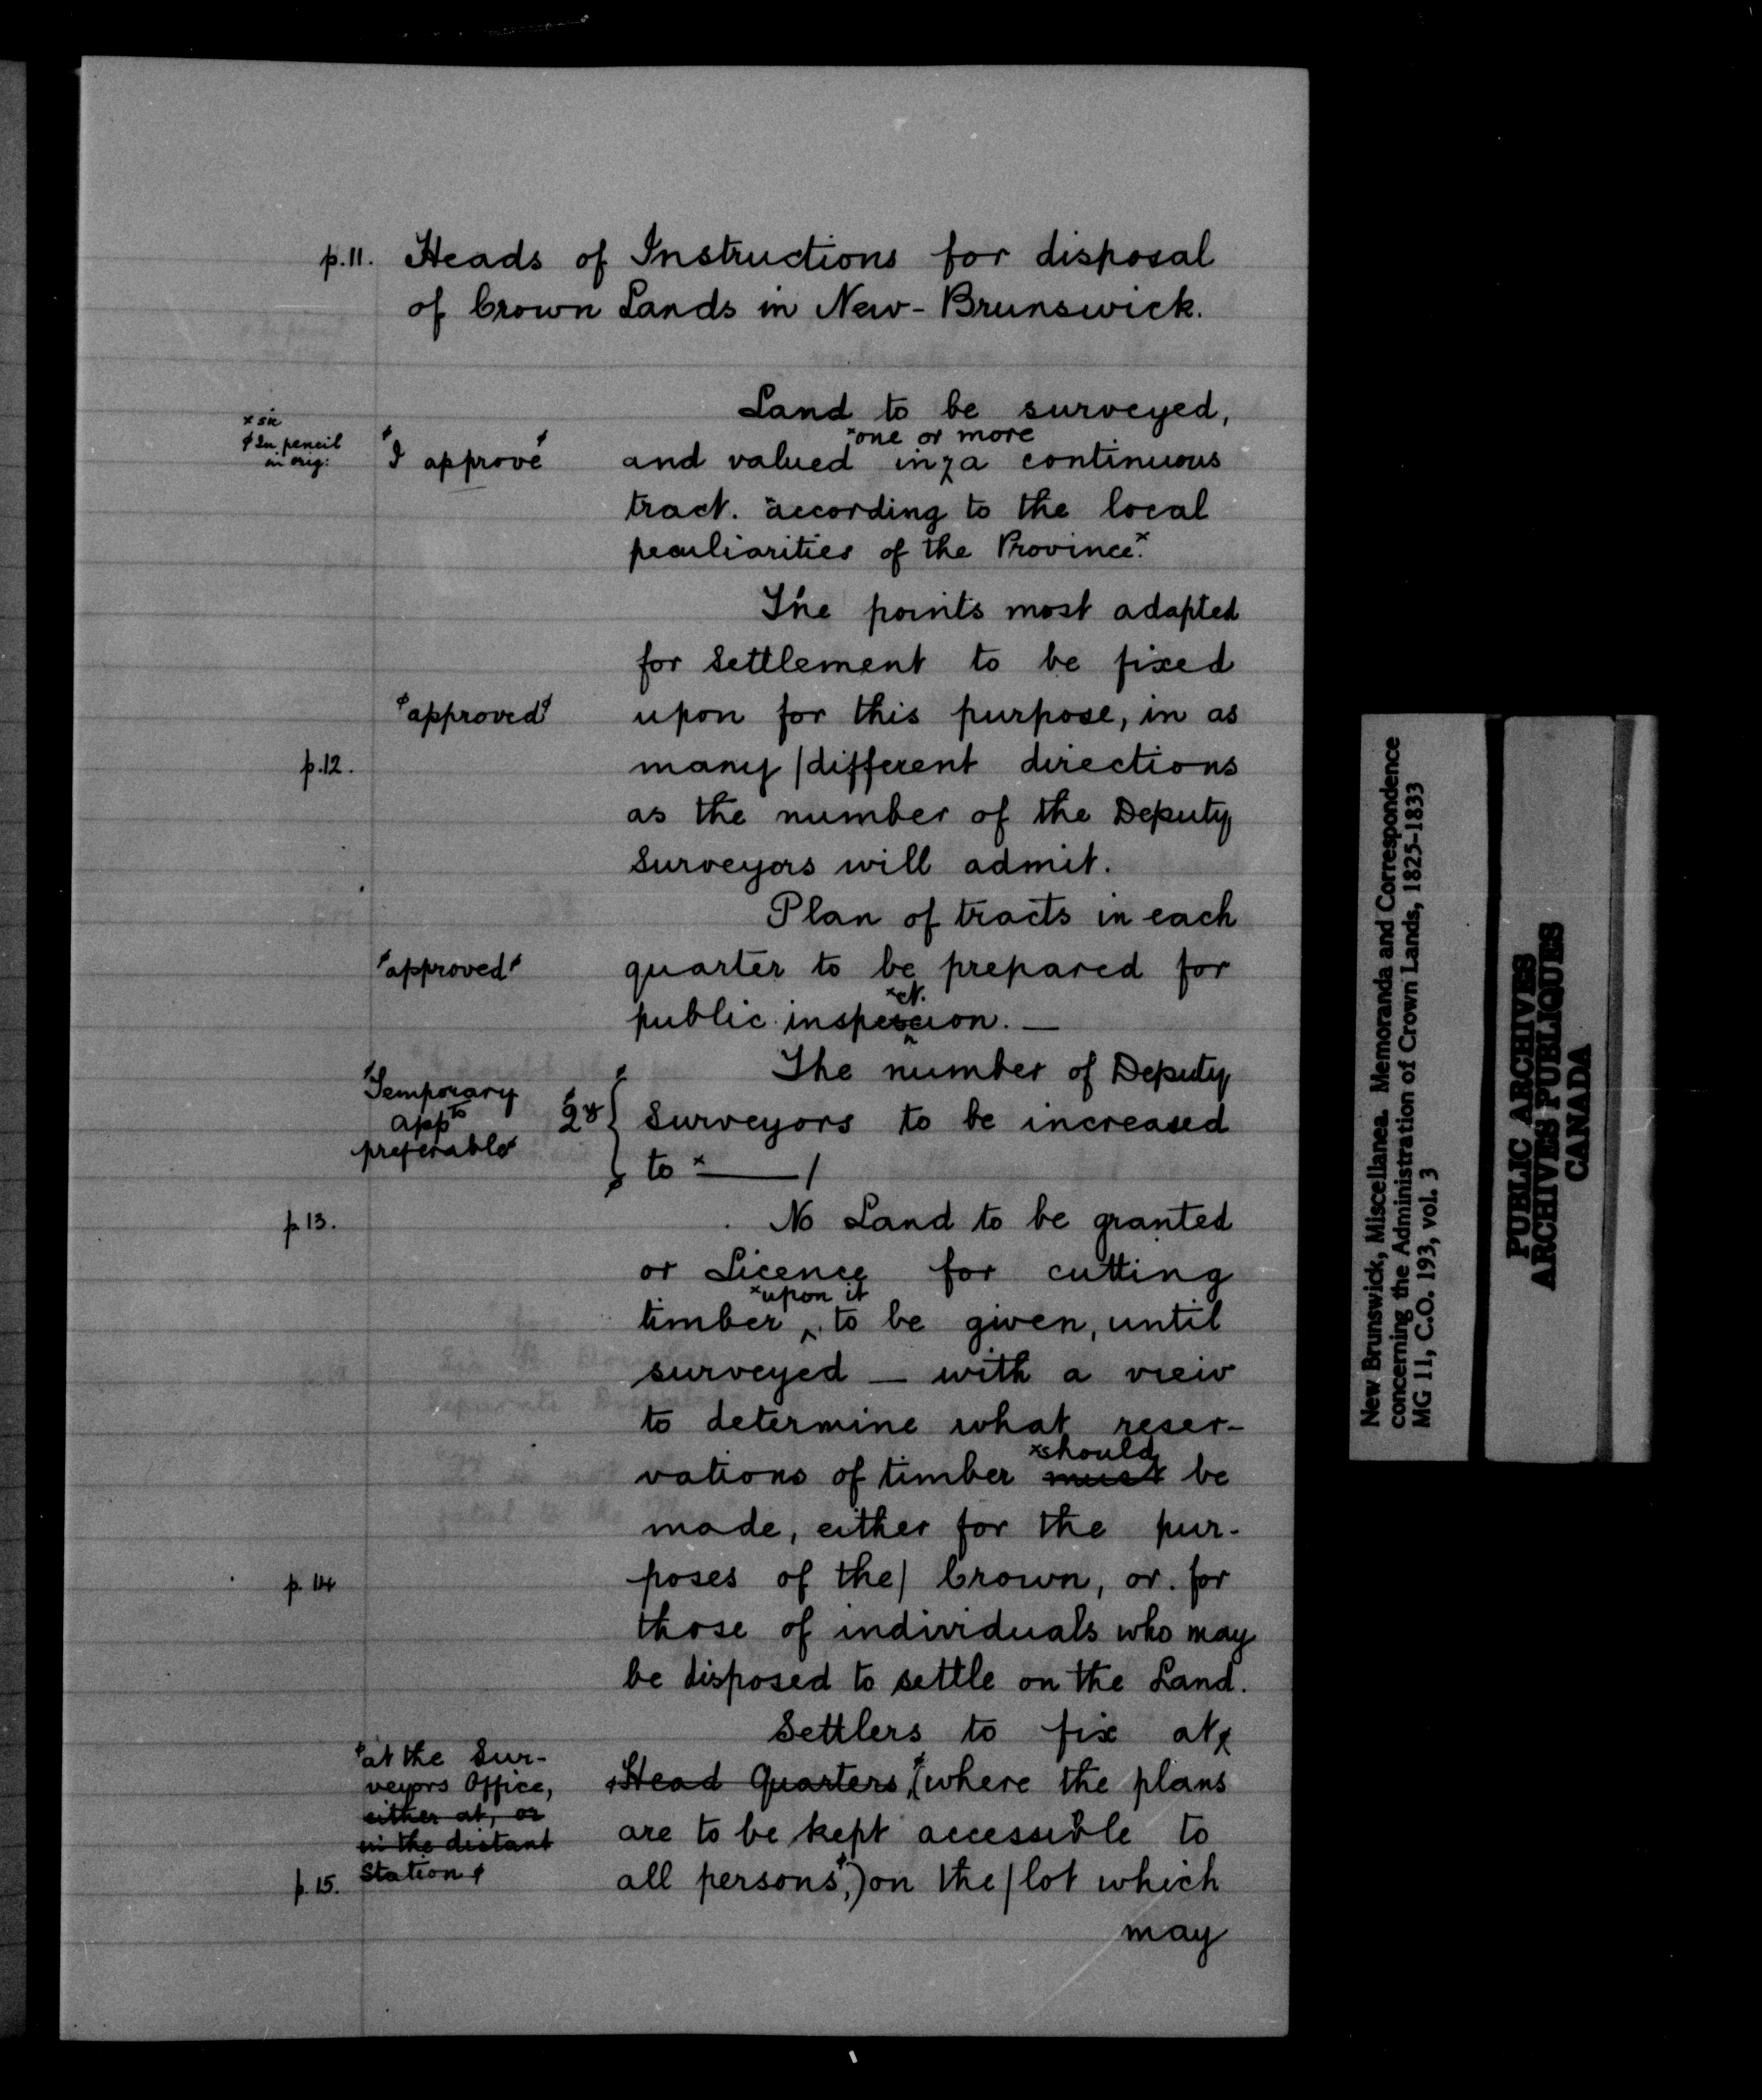 p.11. Heads of Instructions for disposal
of Crown Lands in New-Brunswick.
x sic
¢ In pencil
in orig:
Land to be surveyed,
x one or more
¢I approve¢ and valued in a continuous
tract. xaccording to the local
peculiarities of the Province.x
The points most adapted
for Settlement to be fixed
¢approved¢ upon for this purpose, in as
p.12. many / different directions
as the number of the Deputy
Surveyors will admit.
Plan of tracts in each
¢approved¢ quarter to be prepared for
x ct.
public inspexion. —
¢Temporary
appto
preferable¢
The number of Deputy
Surveyors to be increased
to x——— /
p.13. No Land to be granted
or Licence for cutting
x upon it
timber ‸ to be given, until
surveyed — with a view
to determine what reser-
x should
vations of timber must be
made, either for the pur-
p. 14 poses of the / Crown, or for
those of individuals who may
be disposed to settle on the Land.
Settlers to fix at
¢at the Sur-
veyors Office,
either at, or
in the distant
Station ¢
Head Quarters ¢(where the plans
are to be kept accessible to
p. 15. all persons¢,) on the / lot which
may
New Brunswick, Miscellanea. Memoranda and Correspondence
concerning the Administration of Crown Lands, 1825-1833
MG 11, C.O. 193, vol. 3
PUBLIC ARCHIVES
ARCHIVES PUBLIQUES
CANADA